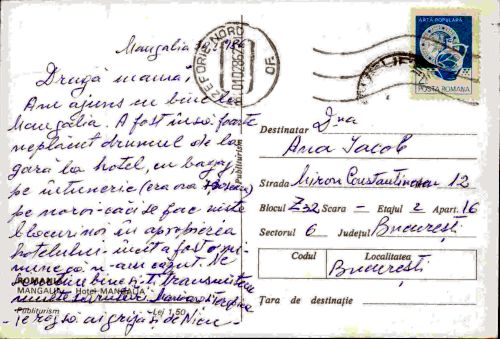 Mangalia
Dragă mamă,
Am ajuns cu bine la
Mangalia. A fost însă foarte
neplăcut drumul de la
gară la hotel, cu bagaj,
pe întuneric (era ora
pe noroi căci se fac niște
blocuri noi în apropierea
hotelului încît a fost o mi-
nune că n-am căzut. Ne
simțim bine și-ți transmitem
multe sărutări.
te rog să ai grijă și de Nicu
MANGALIA - Hotel MANGALIA
Publiturism Lei 1,50
Publiturism
EFORIE NORD
OF.
ARTĂ POPULARĂ
POSTA ROMANA
Destinatar D-na
Ana Iacob
Strada Miron Constantinescu 12
Blocul Z32 Scara – Etajul 2 Apart. 16
Sectorul 6 Județul București
Codul Localitatea
București
Țara de destinație